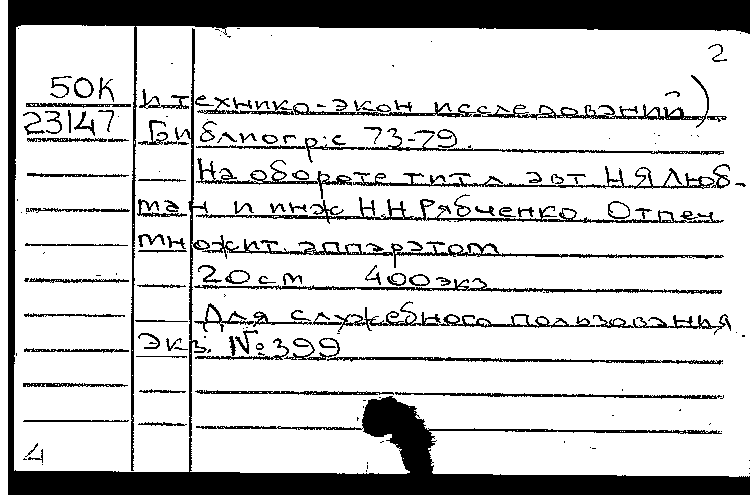 2
50К и технико-экон исследований)
23147 Библиогр: с 73-79.
На обороте тит л. авт Н Я Люб-
ман и инж Н.Н Рябченко. Отпеч
множит. аппаратом
20 см 400 экз
Для служебного пользования
экз. №399
4